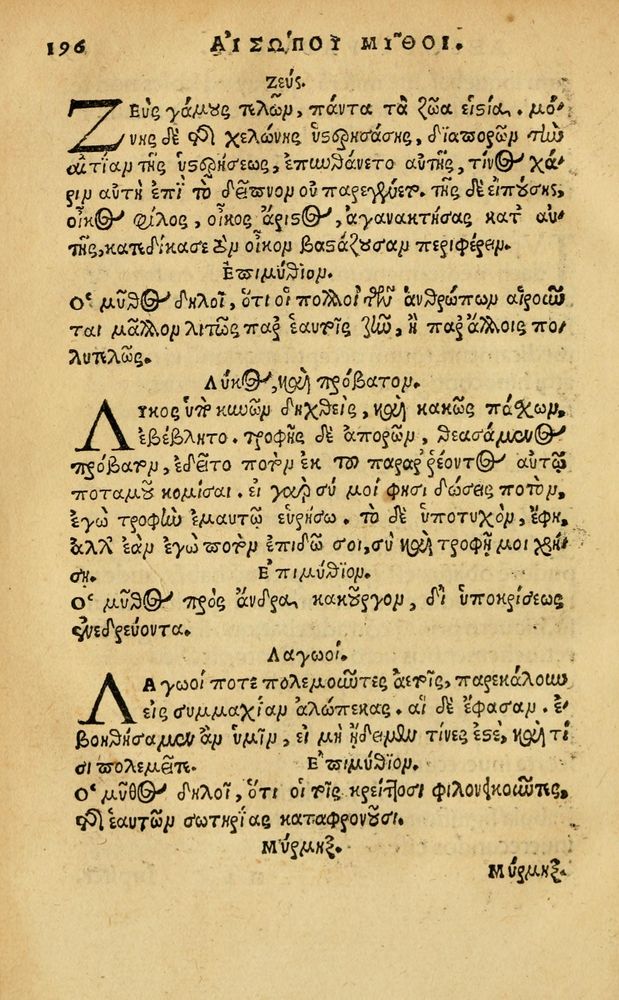 196 ΑἸΣΩ͂ΠΟΥ ΜΙ͂ΘΟΙ.
Ζεύς.
ΖΕὺς γάμους τελῶν, πάντα τὰ ζῶα εἱστία. μό-
νης δὲ τῆς χελώνης ὑστερησάσης, διαπορῶν τὴν
αἰτίαν τῆς ὑστερήσεως, ἐπυνθάνετο αὐτῆς, τίνος χά-
ριν αὐτὴ ἐπὶ τὸ δεῖπνον οὐ παρεγένετο. τῆς δὲ εἰπούσης,
οἶκος φίλος, οἶκος ἄριστος, ἀγανακτήσας κατ' αὐ-
τῆς, κατεδίκασε τὸν οἶκον βαστάζουσαν περιφέρειν.
Ἐπιμύθιον.
Ὁ μῦθος δηλοῖ, ὅτι οἱ πολλοὶ τῶν ἀνθρώπων αἱροῦν
ται μᾶλλον λιτῶς παρ' ἑαυτοῖς ζῆν, ἢ παρ' ἄλλοις πο-
λυτελῶς.
Λύκος, καὶ πρόβατον.
ΛΥκος ὑπὸ κυνῶν δηχθεὶς, καὶ κακῶς πάσχων,
ἐβέβλητο. τροφῆς δὲ ἀπορῶν, θεασάμενος
πρόβατον, ἐδεῖτο ποτὸν ἐκ τοῦ παραῤῥέοντος αὐτῷ
ποταμοῦ κομίσαι. εἰ γὰρ σύ μοί φησι δώσεις ποτὸν,
ἐγὼ τροφὴν ἐμαυτῷ εὑρήσω. τὸ δὲ ὑποτυχὸν, ἔφη,
ἀλλ' ἐὰν ἐγὼ ποτὸν ἐπιδῶ σοι, σὺ καὶ τροφῇ μοι χρή-
ση. Ἐπιμύθιον.
Ὁ μῦθος πρὸς ἄνδρα κακοῦργον, δι' ὑποκρίσεως
ἐνεδρεύοντα.
Λαγωοί.
ΛΑγωοί ποτε πολεμοῦντες ἀετοῖς, παρεκάλουν
εἰς συμμαχίαν ἀλώπεκας. αἱ δὲ ἔφασαν. ἐ-
βοηθήσαμεν ἂν ὑμῖν, εἰ μὴ ᾔδειμεν τίνες ἐστὲ, καὶ τί
σι πολεμεῖτε. Ἐπιμύθιον.
Ὁ μῦθος δηλοῖ, ὅτι οἱ τοῖς κρείττοσι φιλονεικοῦντες,
τῆς ἑαυτῶν σωτηρίας καταφρονοῦσι.
Μύρμηξ.
Μύρμηξ.